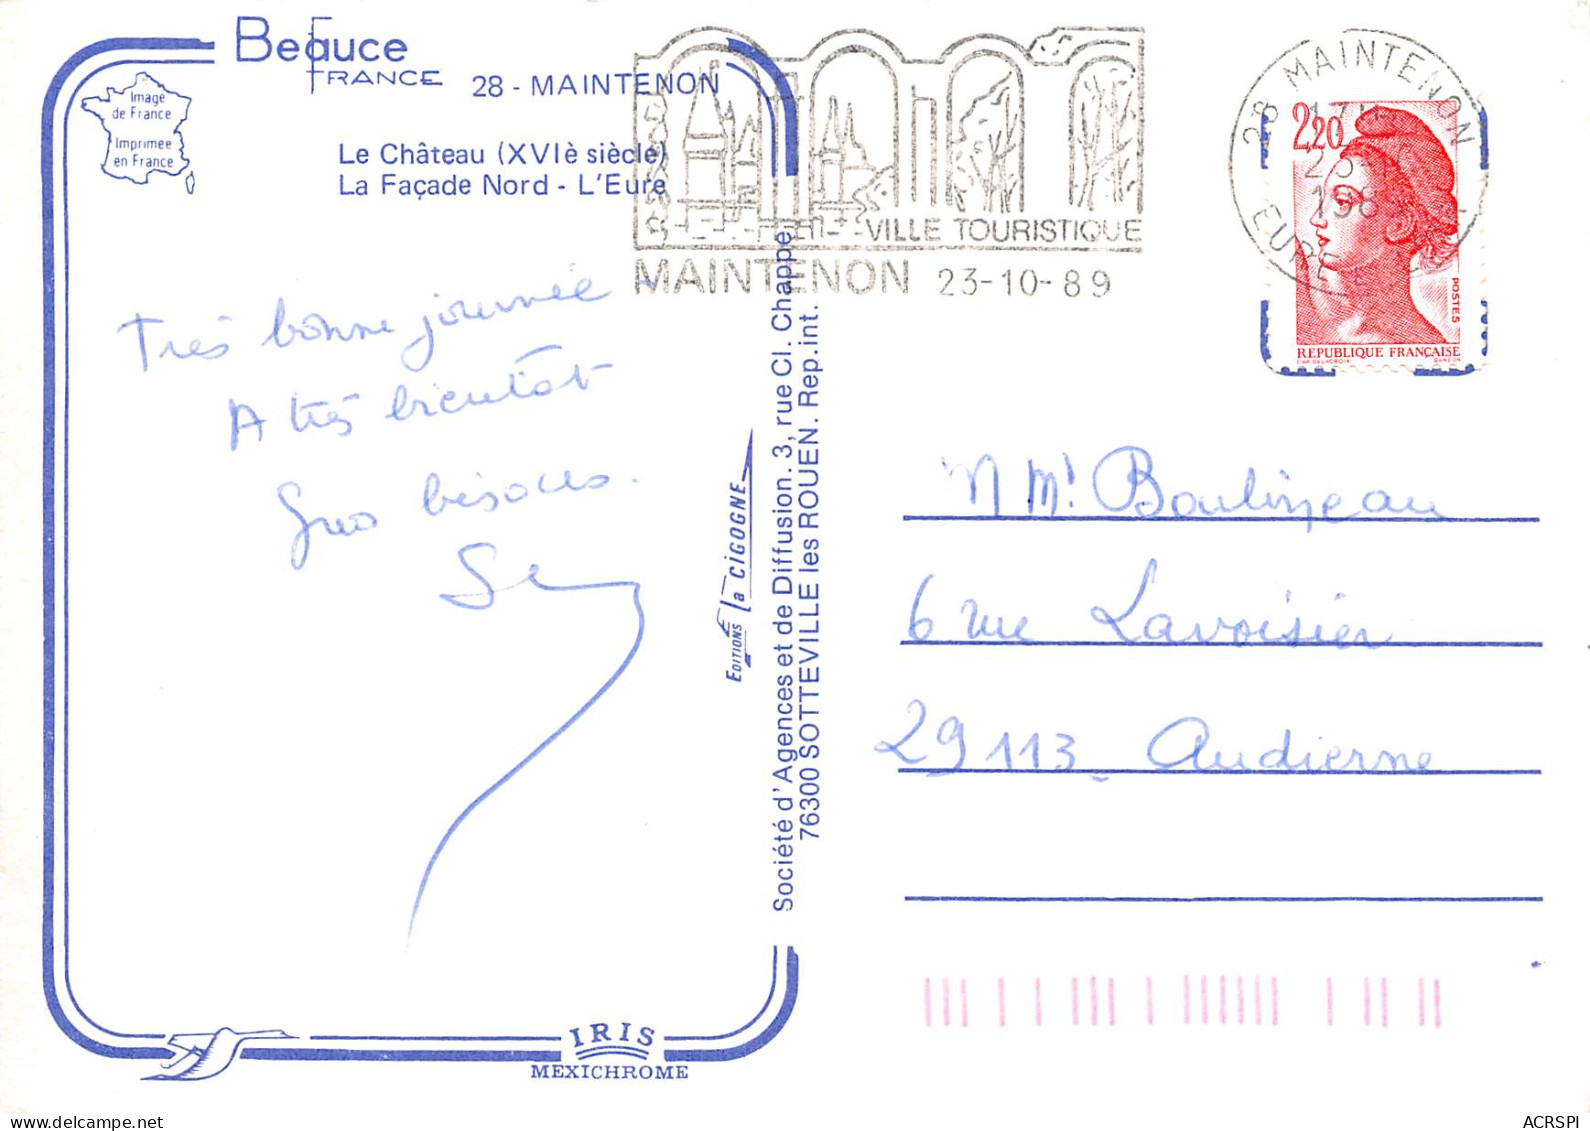 Beauce
FRANCE
28 - MAINTENON
Image
de France
Imprimée
en France
Le Château (XVIè siècle)
La Façade Nord - L'Eure
Très bonne journée
A très bientôt
Gros bisous.
VILLE TOURISTIQUE
MAINTENON 23-10-89
28 MAINTENON
EURE
2,20
POSTES
REPUBLIQUE FRANÇAISE
D'AP. DELACROIX GANDON
EDITIONS la CIGOGNE
Société d'Agences et de Diffusion. 3, rue Cl. Chappe
76300 SOTTEVILLE les ROUEN. Rep.int.
M Mr Boulineau
6 rue Lavoisier
29113 - Audierne
IRIS
MEXICHROME
ACRSPI